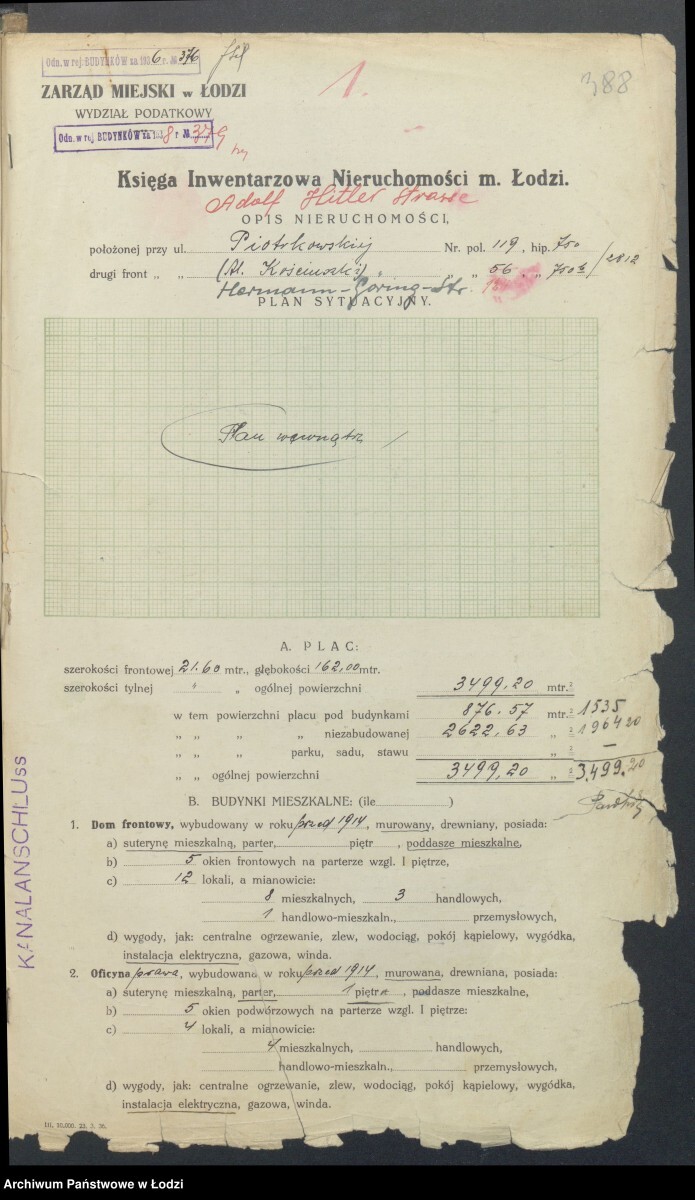 Odn. w rej. BUDYNKÓW za 1936 r. № 376
1.
388
ZARZĄD MIEJSKI w ŁODZI
WYDZIAŁ PODATKOWY
Odn. w rej. BUDYNKÓW za 1938 r. № 379
Księga Inwentarzowa Nieruchomości m. Łodzi.
Adolf Hitler Strasse
OPIS NIERUCHOMOŚCI,
położonej przy ul. Piotrkowskiej Nr. pol. 119, hip. 750
drugi front „ „ (Al. Kościuszki) „ „ 56, „ 750 /2812
Hermann-Göring-Str.
PLAN SYTUACYJNY.
Plan wewnątrz
A. PLAC:
szerokości frontowej 21.60 mtr., głębokości 162,00 mtr.
szerokości tylnej „ „ ogólnej powierzchni 3499,20 mtr.²
w tem powierzchni placu pod budynkami 876.57 mtr.² 1535
„ „ „ „ niezabudowanej 2622,63 „ ² 1964 20
„ „ „ parku, sadu, stawu „ ² —
„ „ ogólnej powierzchni 3499,20 „ ² 3,499.20
B. BUDYNKI MIESZKALNE: (ile )
KANALANSCHLUSS
1. Dom frontowy, wybudowany w roku przed 1914, murowany, drewniany, posiada:
a) suterynę mieszkalną, parter, piętr , poddasze mieszkalne,
b) 5 okien frontowych na parterze wzgl. I piętrze,
c) 12 lokali, a mianowicie:
8 mieszkalnych, 3 handlowych,
1 handlowo-mieszkaln., przemysłowych,
d) wygody, jak: centralne ogrzewanie, zlew, wodociąg, pokój kąpielowy, wygódka,
instalacja elektryczna, gazowa, winda.
2. Oficyna prawa, wybudowana w roku przed 1914, murowana, drewniana, posiada:
a) suterynę mieszkalną, parter, 1 piętro, poddasze mieszkalne,
b) 5 okien podwórzowych na parterze wzgl. I piętrze:
c) 4 lokali, a mianowicie:
4 mieszkalnych, handlowych,
handlowo-mieszkaln., przemysłowych,
d) wygody, jak: centralne ogrzewanie, zlew, wodociąg, pokój kąpielowy, wygódka,
instalacja elektryczna, gazowa, winda.
III. 10.000. 22. 3. 36.
Archiwum Państwowe w Łodzi